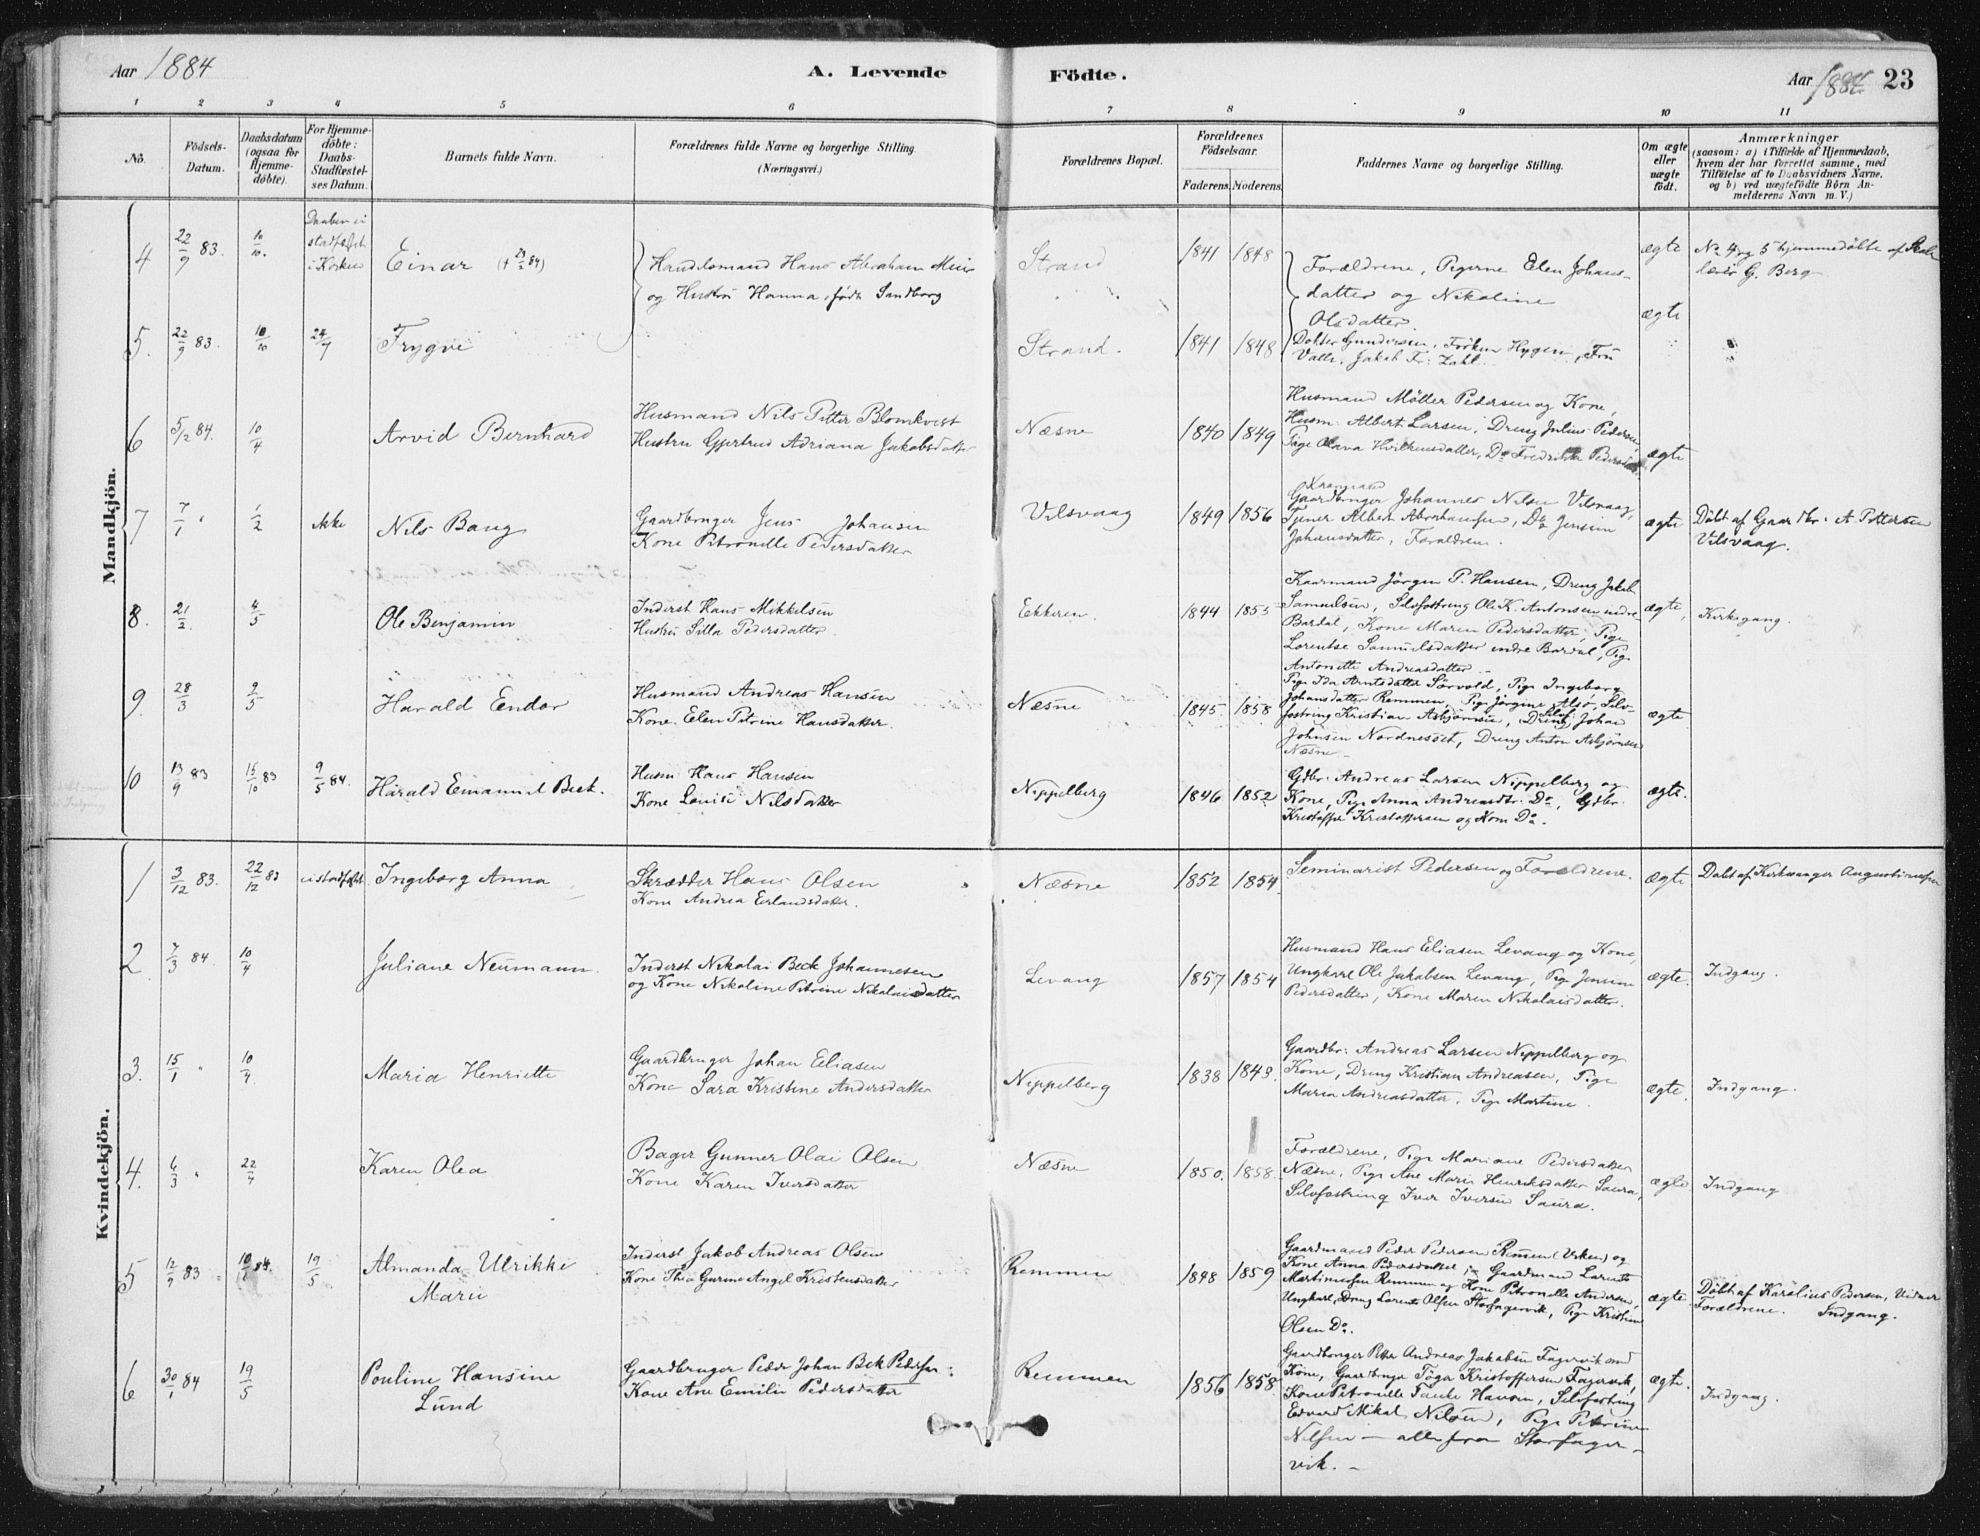 Aar 1884
A. Levende Födte.
Aar 1884. 23
1 2 3 4 5 6 7 8 9 10 11
No.
Födsels-Datum.
Daabsdatum (ogsaa for Hjemme-döbte).
For Hjemme-döbte: Daabs-Stadfæstel-ses Datum.
Barnets fulde Navn.
Forældrenes fulde Navne og borgerlige Stilling. (Næringsvei.)
Forældrenes Bopæl.
Forældrenes Födselsaar.
Faderens. Moderens.
Faddernes Navne og borgerlige Stilling.
Om ægte eller uægte födt.
Anmærkninger
(saasom: a) i Tilfælde af Hjemmedaab, hvem der har forrettet samme, med Tilföielse af to Daabsvidners Navne, og b) ved uægtefödte Börn An-melderens Navn m. V.)
Mandkjön.
4 22/9 83. 10/10. Daaben ei stadfæstet i Kirken Einar Handelsmand Hans Abraham Meier
og Hustru Hanna, födt Sandborg
Strand 1841 1848 Forældrene, Pigerne Elen Johans-
datter og Nikoline
Olsdatter.
ægte No 4 og 5 hjemmedöbte af Skole
lærer G. Berg
5. 22/9 83. 10/10 Trygve Strand. 1841 1848 Dokter Gundersen, Fröken Hygen, Fru
Valle, Jakob Fr. Zahl.
ægte
6 5/2 84. 10/4 Arvid Bernhard Husmand Nils Petter Blomkvist
Hustru Gjertrud Adriana Jakobsdatter
Næsne 1840 1849 Husmand Möller Pedersen og Kone,
Husm. Albert Larsen, Dreng Julius Pedersen
ægte
7 7/1 " 1/2 ikke Nils Bang Gaardbruger Jens Johansen
Kone Petronelle Pedersdatter
Vilsvaag 1849 1856 Gaardbruger Johannes Nilsen Vilsvaag,
Tjener Albert Abrahamsen, Do Jensine
Johansdatter, Forældrene.
ægte Döbt af Gaardbr. A. Pettersen
Vilsvaag.
8. 21/2. 4/5 Ole Benjamin Inderst Hans Mikkelsen
Hustru Silla Pedersdatter.
Ekkeren. 1844 1855 Kaarmand Jörgen P. Hansen, Dreng Jakob
Samuelsen, Selvfostring Ole K. Antonsen indre
Bardal, Kone Maren Pedersdatter, Pige
Lorentse Samuelsdatter indre Bardal, Pig
Antonette Andreasdatter
ægte, Kirkegang.
9. 28/3 9/5 Harald Endor Husmand Andreas Hansen
Kone Elen Petrine Hansdatter.
Næsne 1845. 1858 Pige Ida Arntsdatter Sörvold, Pige Ingeborg
Johansdatter Remmen, Pige Jörgine Alsö, Selv-
fostring Kristian Asbjörnsen, Dreng Johan
Johnsen Nordnesöet, Dreng Anton Asbjörnsen
Næsne
ægte
10 13/9 83 15/10 83 9/5 84. Harald Emanuel Beck. Husm. Hans Hansen
Kone Louise Nilsdatter
Nippelberg 1846 1852 Gdbr. Andreas Larsen Nippelberg og
Kone, Pige Anna Andreasdtr. Do, Gdbr.
Kristoffer Kristoffersen og Kone Do.
ægte.
Kvindekjön.
1 3/12 83. 22/12 83 ei stadfæstet Ingeborg Anna Skrædder Hans Olsen
Kone Andrea Erlandsdatter.
Næsne 1852 1854 Seminarist Pedersen og Forældrene. ægte Döbt af Kirkesanger Augustinussen
2 7/3 84. 10/4 Juliane Neumann. Inderst Nikolai Beck Johannesen
og Kone Nikoline Petrine Nikolaisdatter
Levang 1857 1854 Husmand Hans Eliasen Levang og Kone,
Ungkarl Ole Jakobsen Levang, Pige Jensine
Pedersdatter, Kone Maren Nikolaisdatter.
ægte. Indgang.
3. 15/1 " 10/4. Maria Henriette Gaardbruger Johan Eliasen
Kone Sara Kristine Andersdatter
Nippelberg 1838 1843. Gaardbr: Andreas Larsen Nippelberg og
Kone, Dreng Kristian Andreasen, Pige
Maria Andreasdatter, Pige Martine.
ægte. Indgang.
4. 6/3 " 22/4 Karen Olea Bager Gunner Olai Olsen
Kone Karen Iversdatter
Næsne 1850. 1858 Forældrene, Pige Mariane Pedersdatter
Næsne, Pige Ane Marie Henriksdatter Saura,
Selvfostring Iver Iversen Saura.
ægte Indgang
5 12/9 83 10/1 84. 19/5. Almanda Ulrikke
Marie
Inderst Jakob Andreas Olsen
Kone Thea Gurine Angel Kristensdatter
Remmen 1848 1859 Gaardmand Peder Pedersen Remmen og
Kone Anna Pedersdatter, Gaardmand Lorents
Martinussen Remmen og Kone Petronelle Andersen,
Ungkarl, Dreng Lorents Olsen Storfagervik, Pige Kristine
Olsen Do.
ægte Döbt af Karelius Pedersen, Vidner
Forældrene. Indgang.
6 30/1 84 19/5 Pouline Hansine
Lund
Gaardbruger Peder Johan Bek Pedersen
Kone Ane Emilie Pedersdatter
Remmen 1856 1858. Gaardbruger Peter Andreas Jakobsen Fagervik med
Kone, Gaardbruger Töger Kristoffersen Fagervik,
Kone Petronelle Hansen, Selvfostring
Edvard Mikal Nilsen, Pige Petrine
Nilsen — alle fra Storfager-
vik. —
ægte. Indgang.